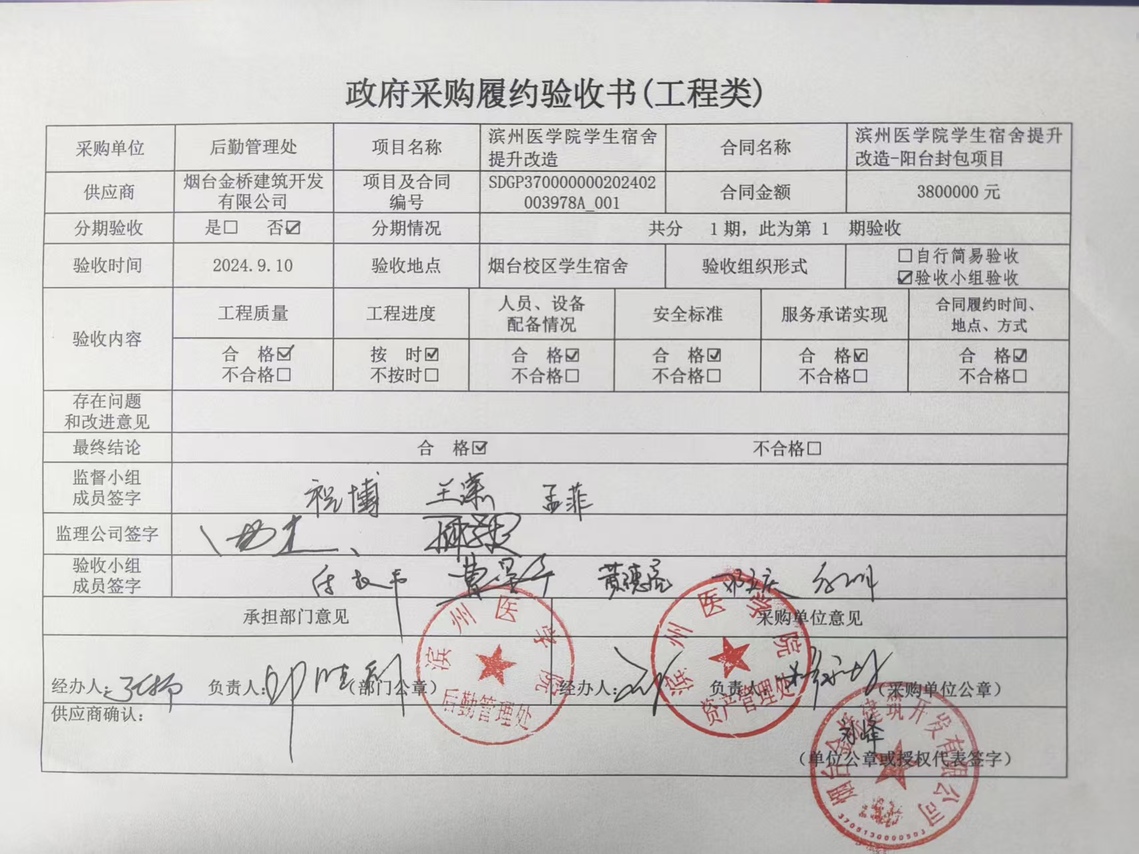 政府采购履约验收书(工程类)
采购单位 后勤管理处 项目名称 滨州医学院学生宿舍提升改造 合同名称 滨州医学院学生宿舍提升改造-阳台封包项目
供应商 烟台金桥建筑开发有限公司 项目及合同编号 SDGP370000000202402003978A_001 合同金额 3800000 元
分期验收 是☐ 否☑ 分期情况 共分 1 期，此为第 1 期验收
验收时间 2024.9.10 验收地点 烟台校区学生宿舍 验收组织形式 ☐自行简易验收
☑验收小组验收
验收内容 工程质量 工程进度 人员、设备配备情况 安全标准 服务承诺实现 合同履约时间、地点、方式
合 格☑ 按 时☑ 合 格☑ 合 格☑ 合 格☑ 合 格☑
不合格☐ 不按时☐ 不合格☐ 不合格☐ 不合格☐ 不合格☐
存在问题和改进意见
最终结论 合 格☑ 不合格☐
监督小组成员签字 祝博 王潇 孟菲
监理公司签字
验收小组成员签字 黄德强
承担部门意见 采购单位意见
经办人: 负责人: (部门公章) 经办人: 负责人: (采购单位公章)
滨州医学院
后勤管理处
滨州医学院
资产管理处
供应商确认：
(单位公章或授权代表签字)
烟台金桥建筑开发有限公司